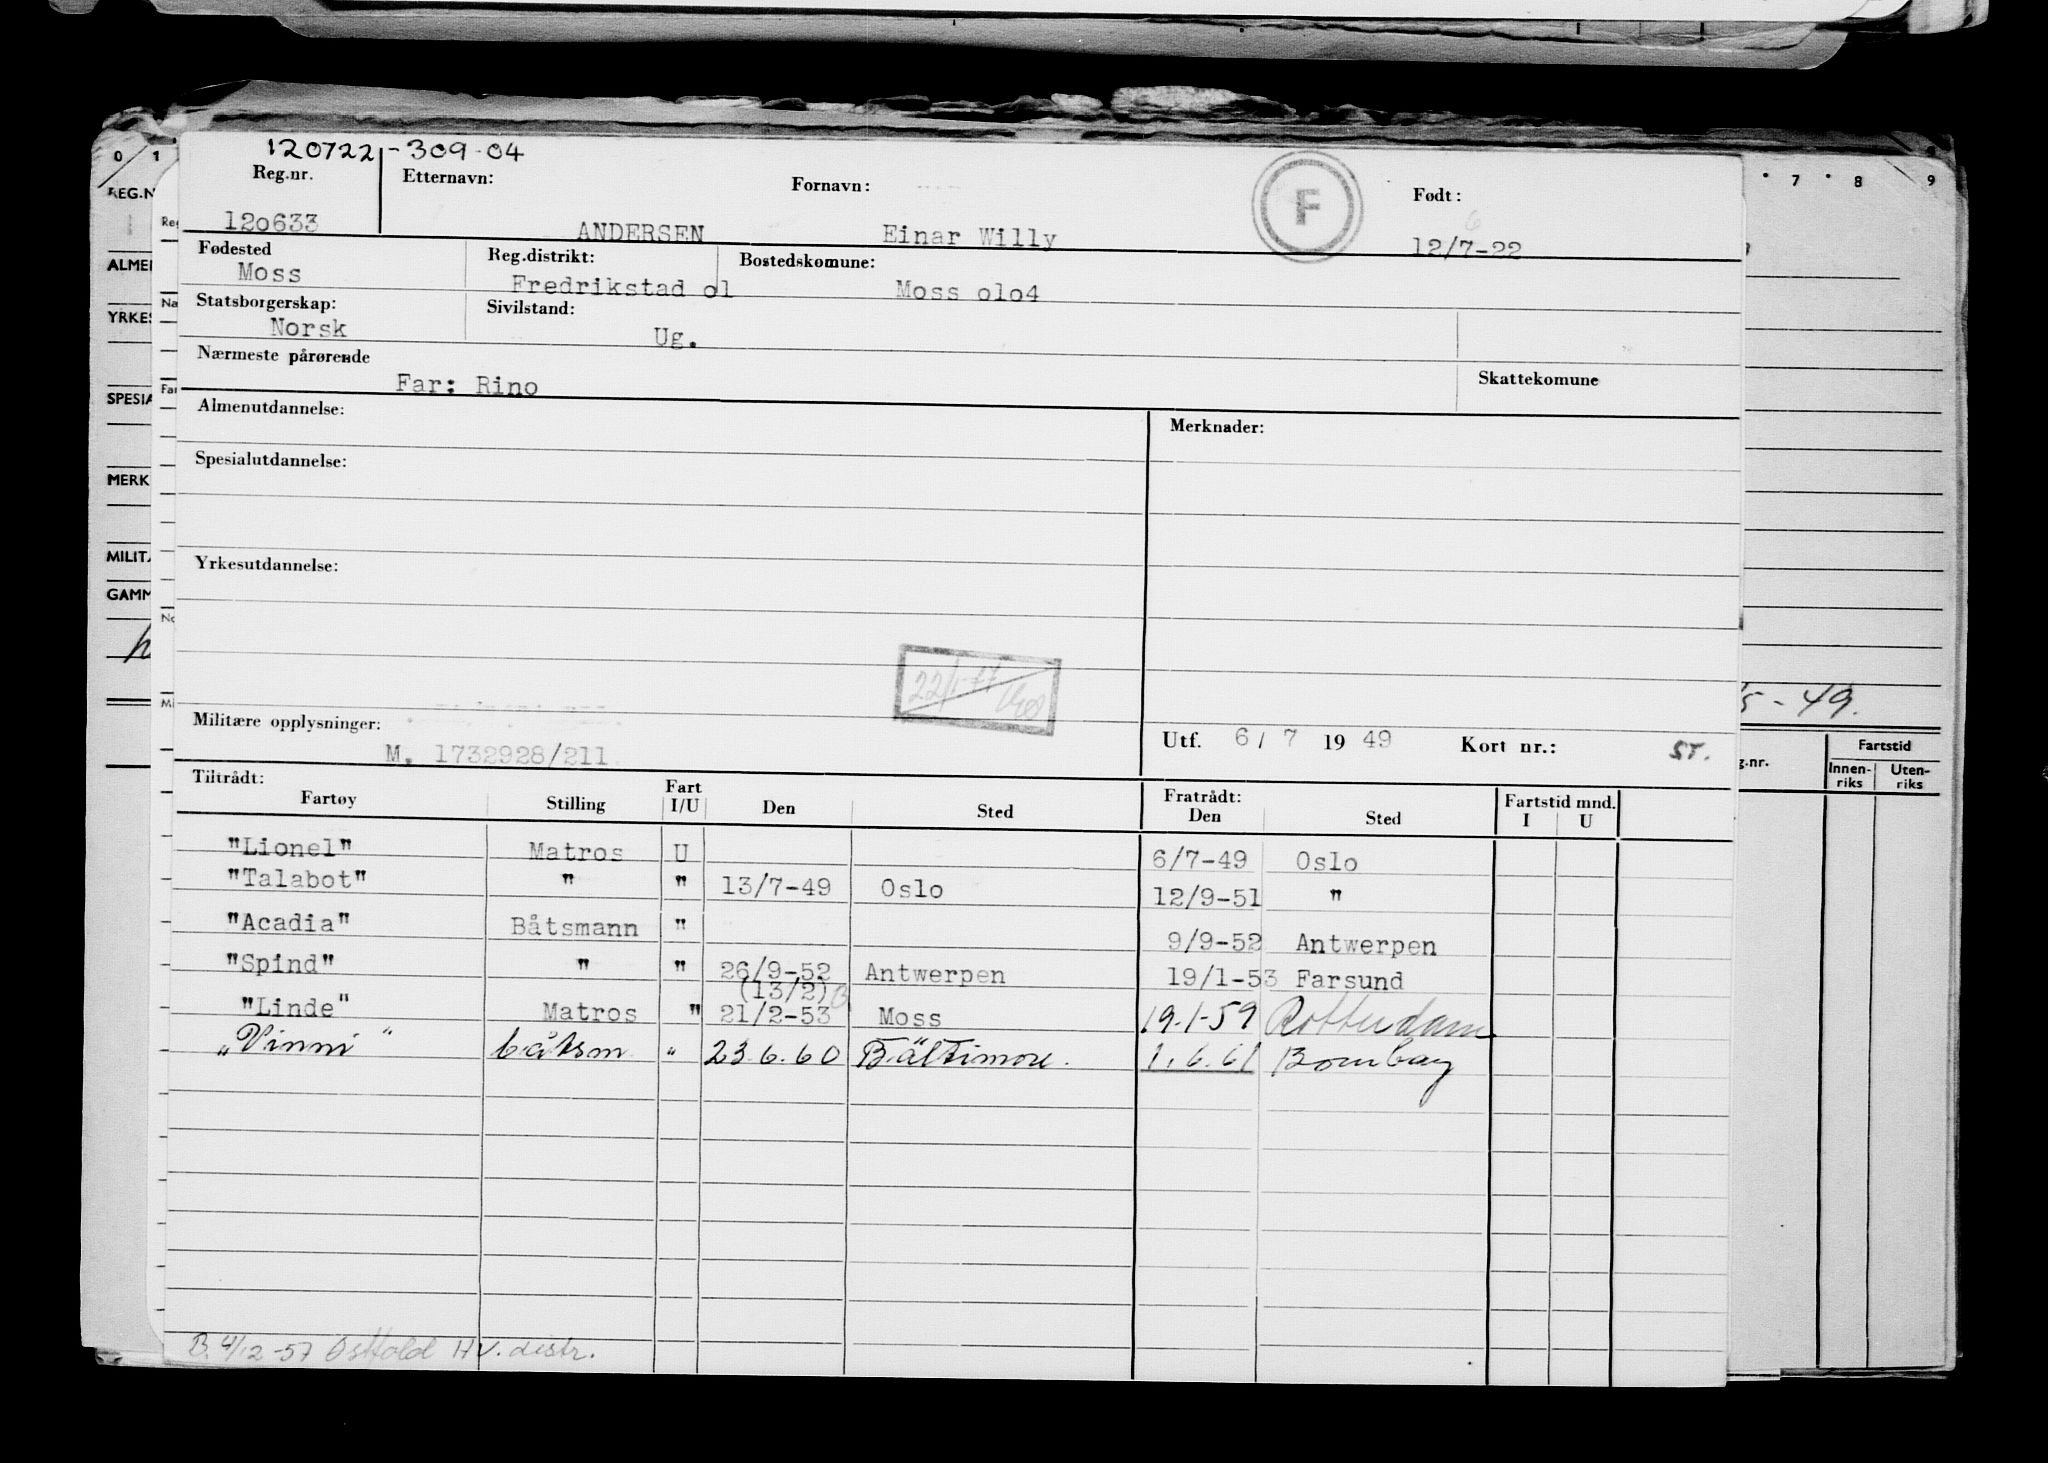 0 1 7 8 9
120722-309-04
Reg.nr. Etternavn: Fornavn: F Født:
120633 ANDERSEN Einar Willy 12/7-22
Fødested Reg.distrikt: Bostedskomune:
Moss Fredrikstad o1 Moss o1o4
Statsborgerskap: Sivilstand:
Norsk Ug.
Nærmeste pårørende Skattekomune
Far: Rino
Almenutdannelse: Merknader:
Spesialutdannelse:
Yrkesutdannelse:
22/1-77
Militære opplysninger: Utf. 6/7 1949 Kort nr.: ST.
M. 1732928/211
Tiltrådt: Fratrådt: Fartstid mnd.
Fartøy Stilling Fart I/U Den Sted Den Sted I U
"Lionel" Matros U 6/7-49 Oslo
"Talabot" " " 13/7-49 Oslo 12/9-51 "
"Acadia" Båtsmann " 9/9-52 Antwerpen
"Spind" " " 26/9-52 Antwerpen 19/1-53 Farsund
(13/2)
"Linde" Matros " 21/2-53 Moss 19.1-59 Rotterdam
"Vinni" båtsm " 23.6.60 Baltimore. 1.6.61 Bombay
B. 4/12-57 Østfold HV. distr.
REG.N
ALMEN
YRKES
SPESIA
MERK
MILITÆ
GAMM
-49.
g.nr. Fartstid
Innen-riks Uten-riks